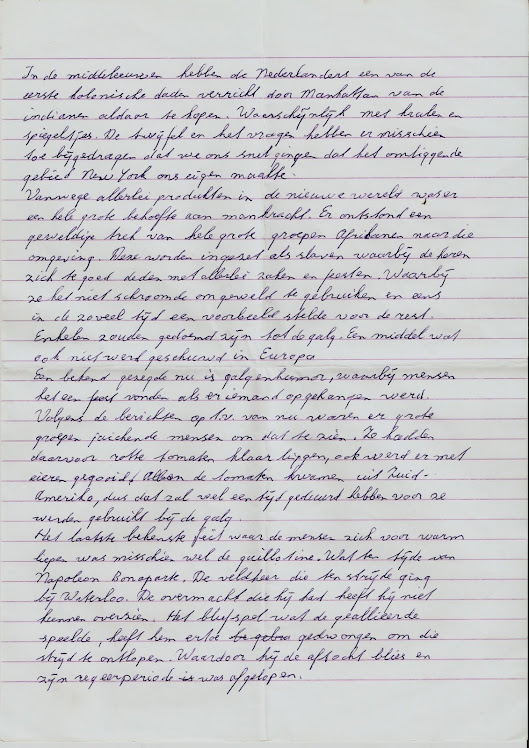 In de middeleeuwen hebben de Nederlanders een van de
eerste kolonische daden verricht door Manhattan van de
indianen aldaar te kopen. Waarschijnlijk met kralen en
spiegeltjes. De twijfel en het vragen hebben er misschien
toe bijgedragen dat we ons gingen dat het omliggende
gebied New York ons eigen maakte.
Vanwege allerlei produkten in de nieuwe wereld was er
een hele grote behoefte aan mankracht. Er ontstond een
geweldige trek van hele grote groepen Afrikanen naar die
omgeving. Deze worden ingezet als slaven waarbij de heren
zich te goed deden met allerlei zaken en feesten. Waarbij
ze het niet schroomde om geweld te gebruiken en eens
in de zoveel tijd een voorbeeld stelde voor de rest.
Enkelen zouden gedoemd zijn tot de galg. Een middel wat
ook niet werd geschuwd in Europa
Een bekend gezegde nu is galgenhumor, waarbij mensen
het een feest vonden als er iemand opgehangen werd.
Volgens de berichten op t.v. van nu waren er grote
groepen juichende mensen om dat te zien. Ze hadden
daarvoor rotte tomaten klaar liggen, ook werd er met
eieren gegooid. Alleen de tomaten kwamen uit Zuid-
Amerika, dus dat zal wel een tijd geduurd hebben voor ze
werden gebruikt bij de galg.
Het laatste bekenste feit waar de mensen zich voor warm
liepen was misschien wel de guillotine. Wat ten tijde van
Napoleon Bonaparte. De veldheer die ten strijde ging
bij Waterloo. De overmacht die hij had heeft hij niet
kunnen overzien. Het blufspel wat de geallieerde
speelde, heeft hem ertoe gedwongen om die
strijd te ontlopen. Waardoor hij de aftocht blies en
zijn regeerperiode was afgelopen.